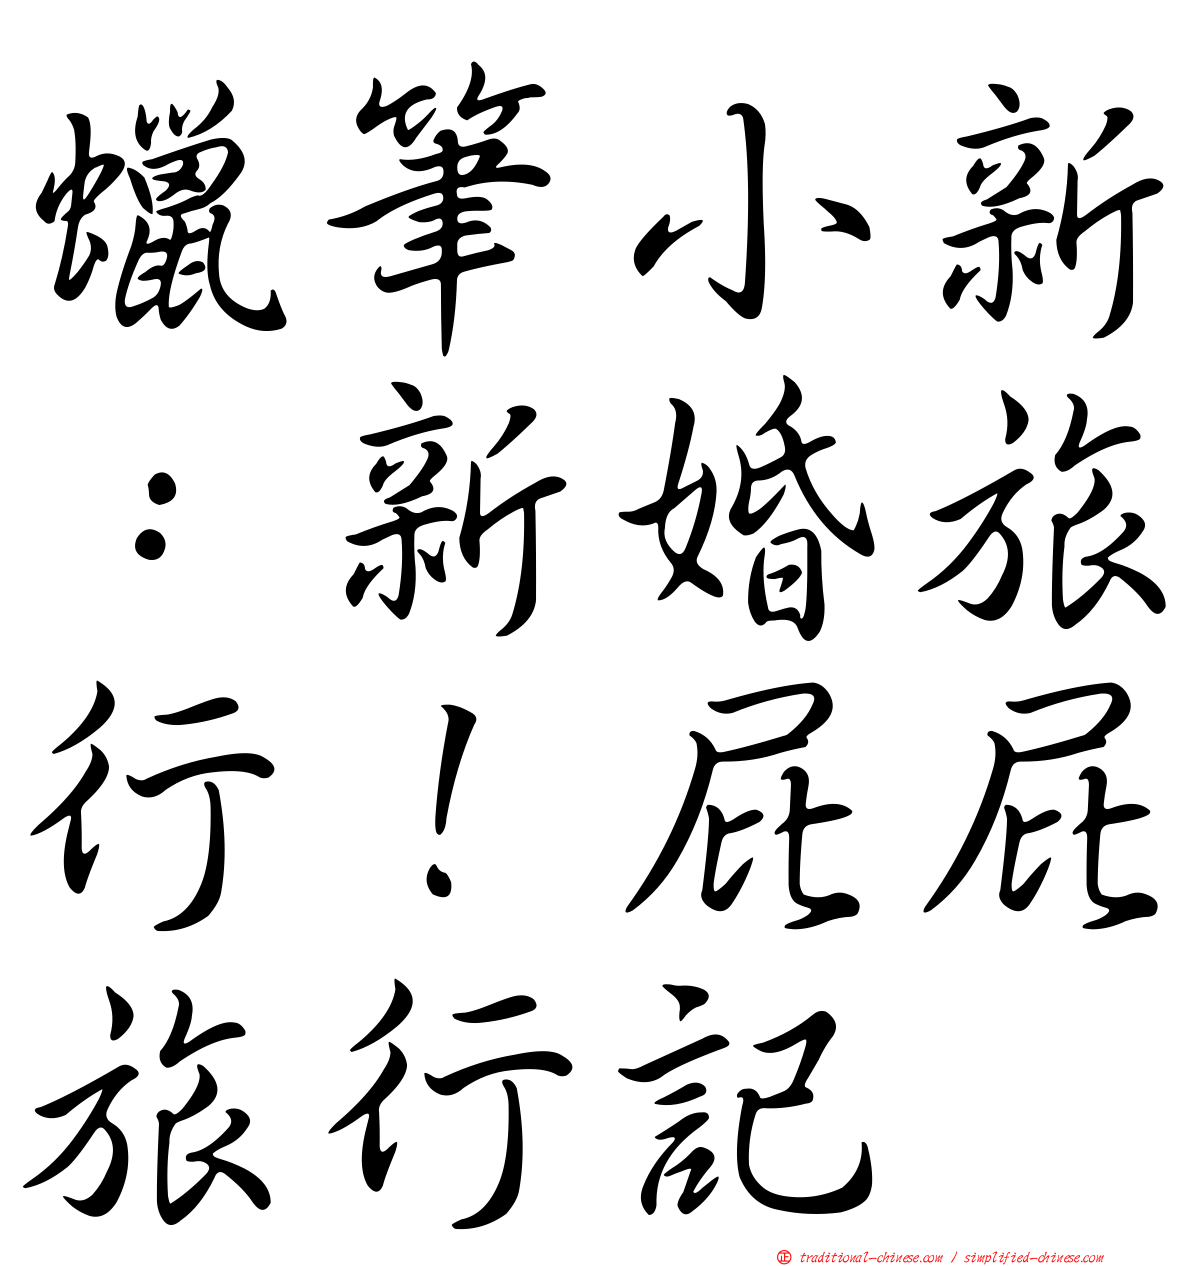 蠟筆小新
：新婚旅
行！屁屁
旅行記
㊣ traditional-chinese.com / simplified-chinese.com